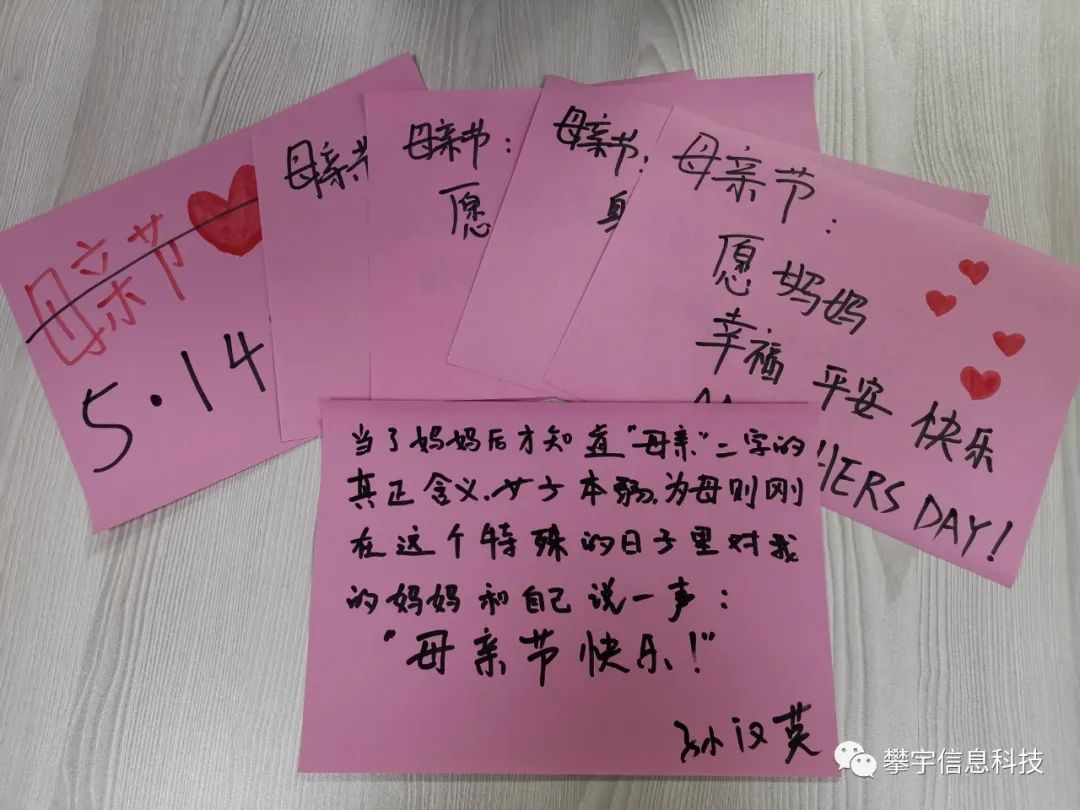 母亲节
5.14
母亲节
母亲节：
愿
母亲节.
母亲节：
愿妈妈
幸福 平安 快乐
HERS DAY!
当了妈妈后才知道"母亲"二字的
真正含义.女子本弱,为母则刚
在这个特殊的日子里对我
的妈妈和自己说一声：
"母亲节快乐!"
孙汉英
攀宇信息科技